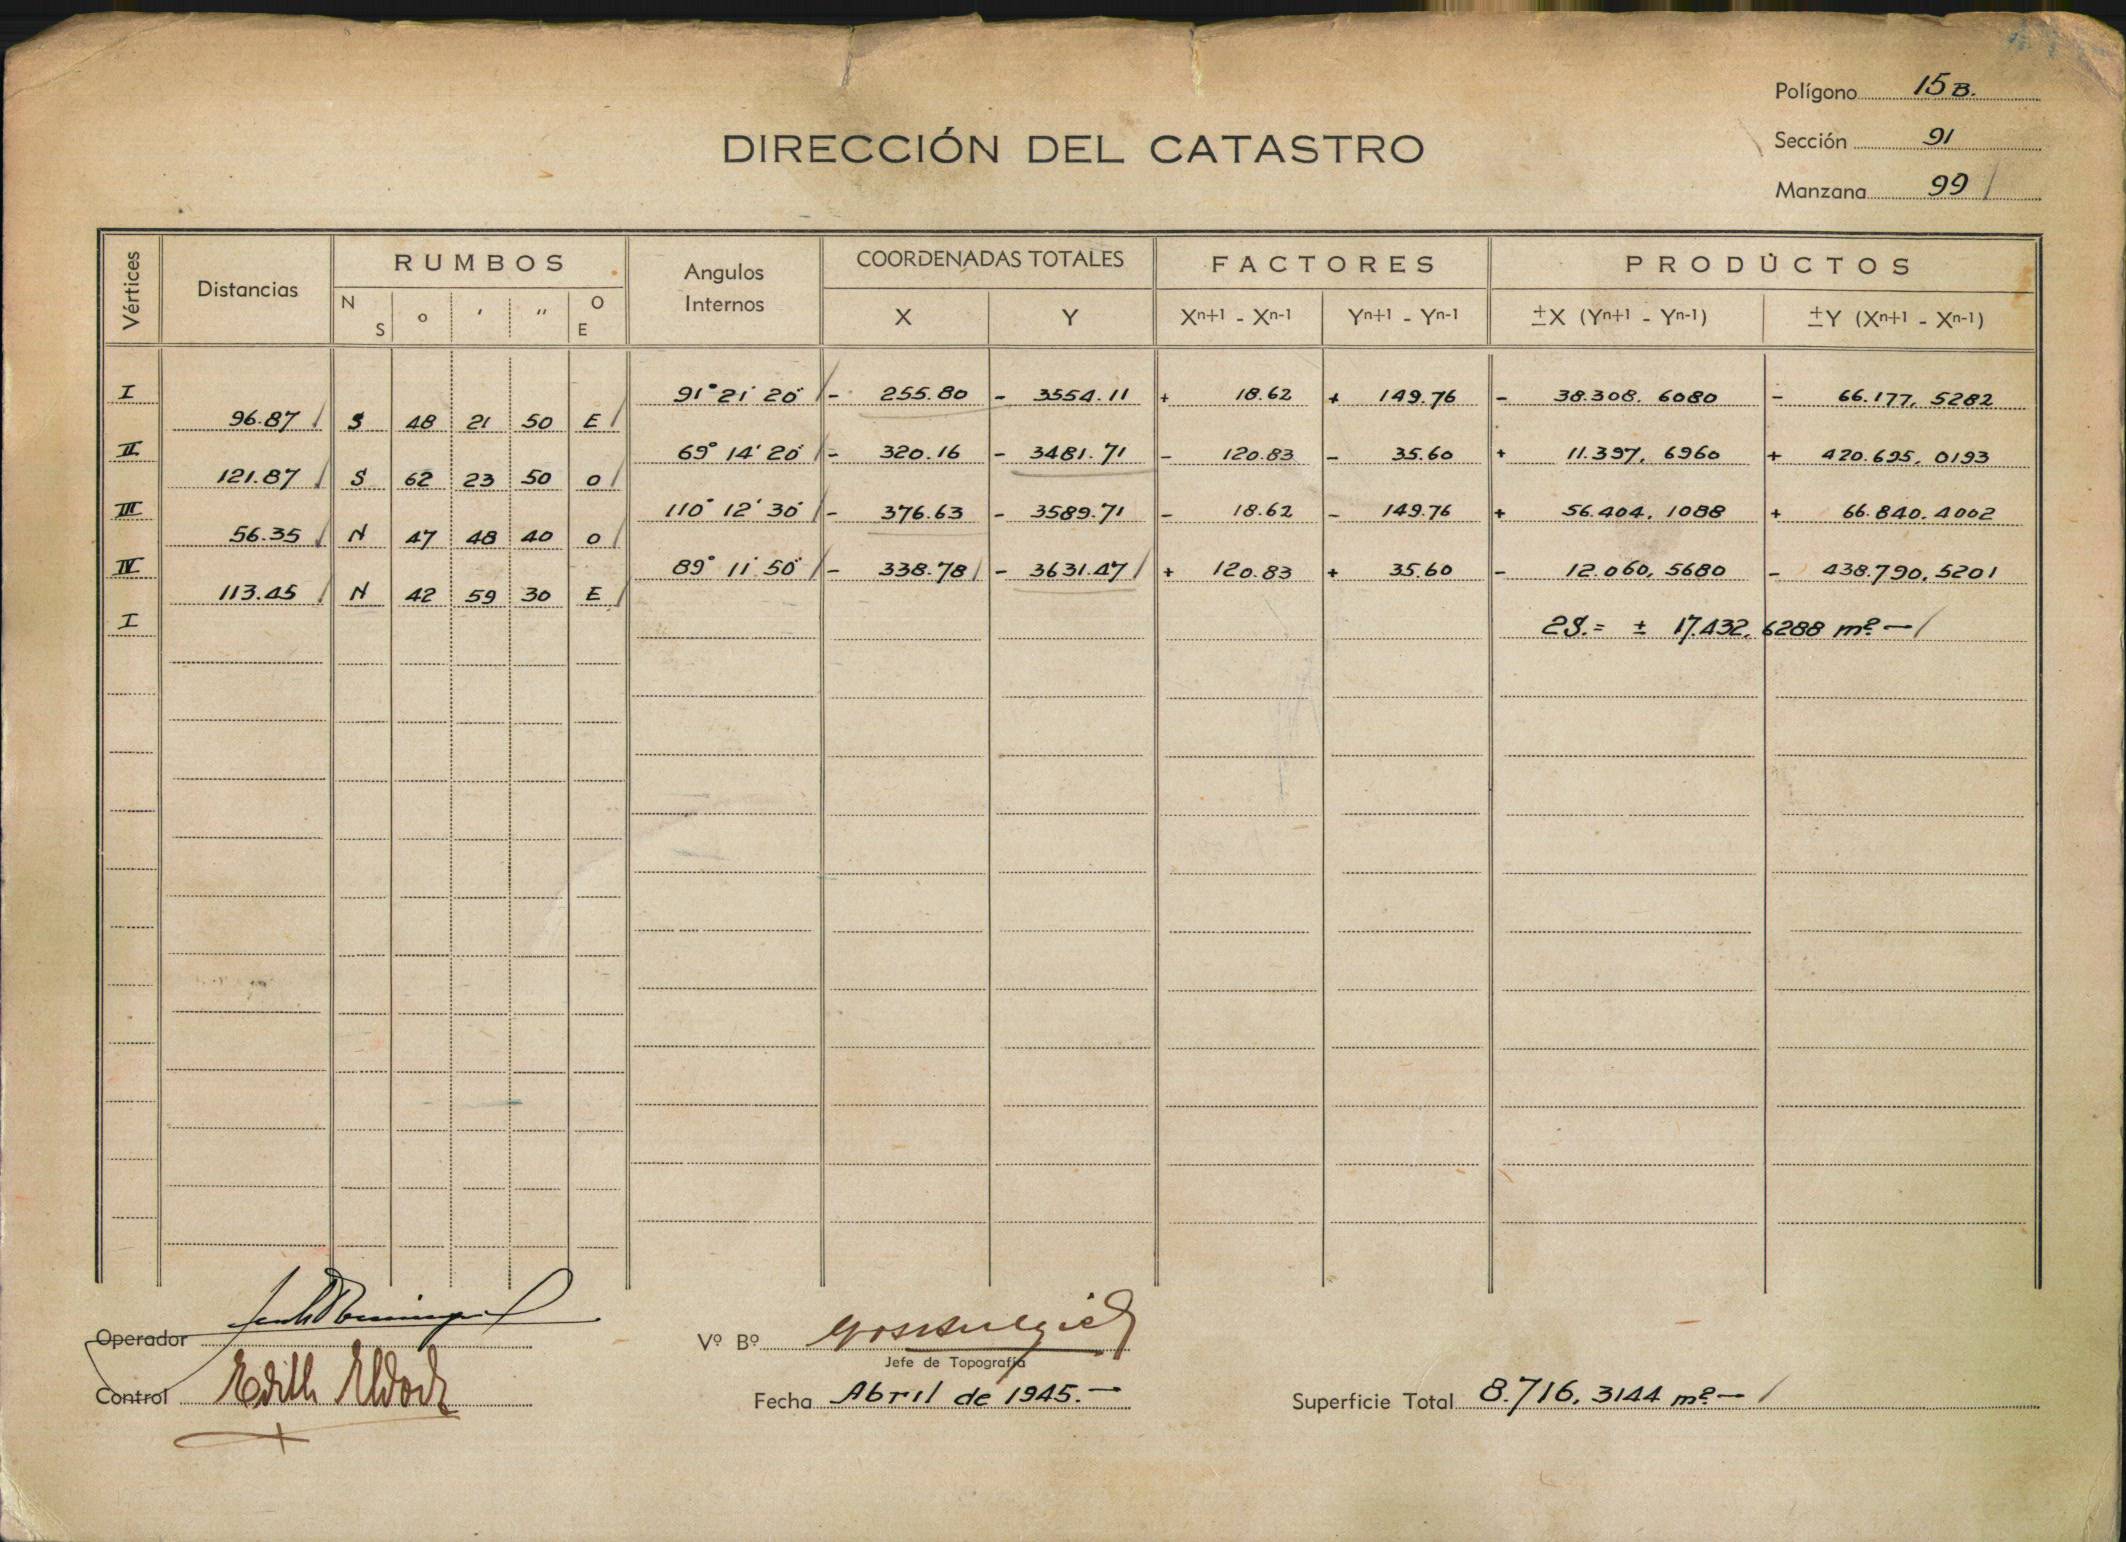 Polígono 15 B.
DIRECCIÓN DEL CATASTRO
Sección 91
Manzana 99
Vértices Distancias RUMBOS Angulos Internos COORDENADAS TOTALES FACTORES PRODUCTOS
N S o ' '' O E X Y Xn+1 - Xn-1 Yn+1 - Yn-1 ±X (Yn+1 - Yn-1) ±Y (Xn+1 - Xn-1)
I 91° 21' 20'' - 255.80 - 3554.11 + 18.62 + 149.76 - 38.308, 6080 - 66.177, 5282
96.87 S 48 21 50 E
II 69° 14' 20'' - 320.16 - 3481.71 - 120.83 - 35.60 + 11.397, 6960 + 420.695, 0193
121.87 S 62 23 50 O
III 110° 12' 30'' - 376.63 - 3589.71 - 18.62 - 149.76 + 56.404, 1088 + 66.840, 4002
56.35 N 47 48 40 O
IV 89° 11' 50'' - 338.78 - 3631.47 + 120.83 + 35.60 - 12.060, 5680 - 438.790, 5201
113.45 N 42 59 30 E
I 2S. = ± 17.432, 6288 m2.-
Operador
Vº Bº
Jefe de Topografía
Control Edith
Fecha Abril de 1945.-
Superficie Total 8.716, 3144 m2.-